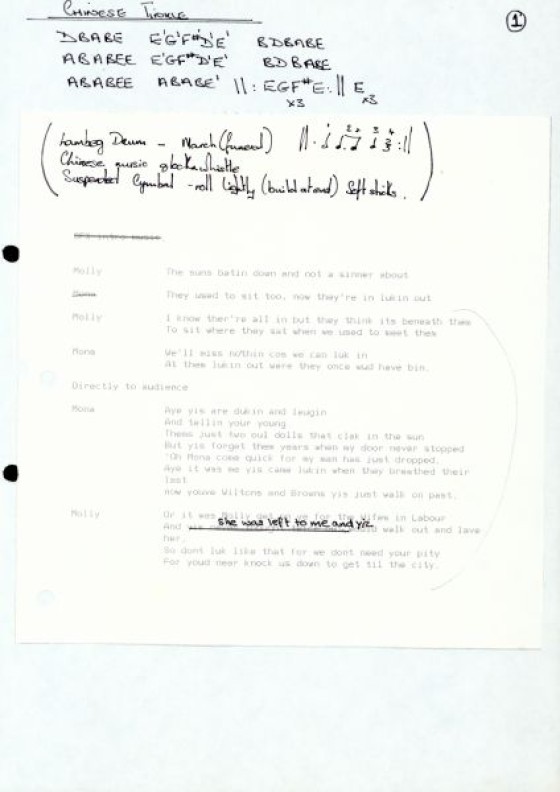 CHINESE
①
DBABE E'G'F#'D'E' BDBABE
ABABEE E'GF#'D'E' BDBABE
ABABEE ABABE' ||: EGF#E :|| E
x3 x3
Lambeg Drum - March (funeral)
Chinese music glock & whistle
Suspended Cymbal - roll lightly (build at end) Soft sticks.
Molly The suns batin down and not a sinner about
Mona They used to sit too, now they're in lukin out
Molly I know ther're all in but they think its beneath them
To sit where they sat when we used to meet them
Mona We'll miss nothin cos we can luk in
At them lukin out were they once wud have bin.
Directly to audience
Mona Aye yis are dukin and laugin
And tellin your young
Thems just two oul dolls that clak in the sun
But yis forget them years when my door never stopped
'Oh Mona come quick for my man has just dropped.
Aye it was me yis came lukin when they breathed their
last
now youve Wiltons and Browns yis just walk on past.
Molly Or it was Molly get up ye for the Wifes in Labour
And she was left to me and yiz walk out and lave
her.
So dont luk like that for we dont need your pity
For youd near knock us down to get til the city.